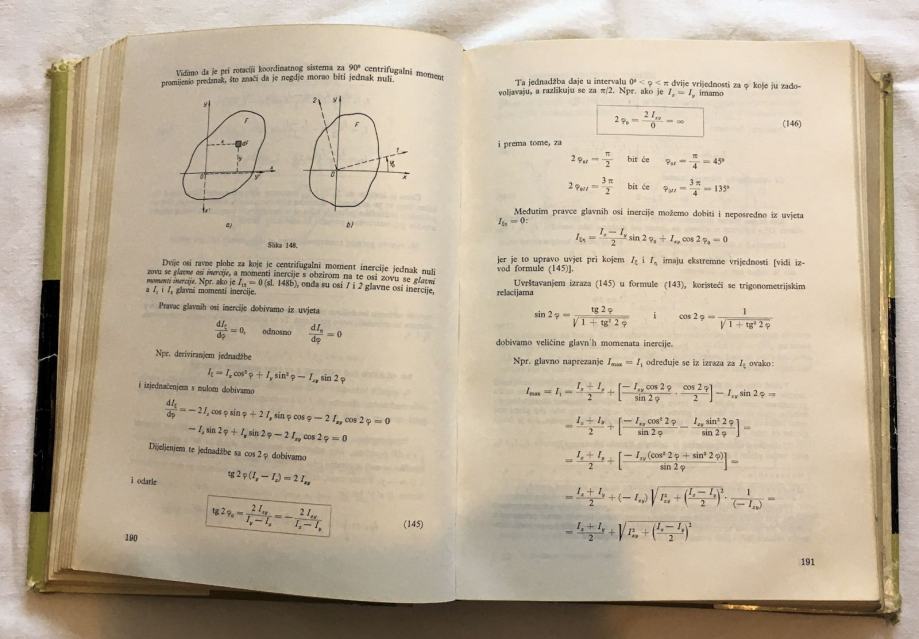 Vidimo da je pri rotaciji koordinatnog sistema za 90° centrifugalni moment
promijenio predznak, što znači da je negdje morao biti jednak nuli.
y
F
x
y
dF
0
y'
x
x'
a)
2
y
F
1
φ₀
0
x
b)
Slika 148.
Dvije osi ravne plohe za koje je centrifugalni moment inercije jednak nuli
zovu se glavne osi inercije, a momenti inercije s obzirom na te osi zovu se glavni
momenti inercije. Npr. ako je I₁₂ = 0 (sl. 148b), onda su osi 1 i 2 glavne osi inercije,
a I₁ i I₂ glavni momenti inercije.
Pravac glavnih osi inercije dobivamo iz uvjeta
dI_ξ/dφ = 0, odnosno dI_η/dφ = 0
Npr. deriviranjem jednadžbe
I_ξ = I_x cos² φ + I_y sin² φ − I_xy sin 2 φ
i izjednačenjem s nulom dobivamo
dI_ξ/dφ = − 2 I_x cos φ sin φ + 2 I_y sin φ cos φ − 2 I_xy cos 2 φ = 0
− I_x sin 2 φ + I_y sin 2 φ − 2 I_xy cos 2 φ = 0
Dijeljenjem te jednadžbe sa cos 2 φ dobivamo
tg 2 φ (I_y − I_x) = 2 I_xy
i odatle
tg 2 φ₀ = 2 I_xy/(I_y − I_x) = − 2 I_xy/(I_x − I_y) (145)
190
Ta jednadžba daje u intervalu 0° < φ < π dvije vrijednosti za φ koje ju zado-
voljavaju, a razlikuju se za π/2. Npr. ako je I_x = I_y imamo
2 φ₀ = 2 I_xy/0 = ∞ (146)
i prema tome, za
2 φ₀I = π/2 bit će φ₀I = π/4 = 45°
2 φ₀II = 3 π/2 bit će φ₀II = 3 π/4 = 135°
Međutim pravce glavnih osi inercije možemo dobiti i neposredno iz uvjeta
I_ξη = 0:
I_ξη = (I_x − I_y)/2 sin 2 φ₀ + I_xy cos 2 φ₀ = 0
jer je to upravo uvjet pri kojem I_ξ i I_η imaju ekstremne vrijednosti [vidi iz-
vod formule (145)].
Uvrštavanjem izraza (145) u formule (143), koristeći se trigonometrijskim
relacijama
sin 2 φ = tg 2 φ/√(1 + tg² 2 φ) i cos 2 φ = 1/√(1 + tg² 2 φ)
dobivamo veličine glavn'h momenata inercije.
Npr. glavno naprezanje I_max = I₁ određuje se iz izraza za I_ξ ovako:
I_max = I₁ = (I_x + I_y)/2 + [− I_xy cos 2 φ/sin 2 φ · cos 2 φ/2] − I_xy sin 2 φ =
= (I_x + I_y)/2 + [− I_xy cos² 2 φ/sin 2 φ − I_xy sin² 2 φ/sin 2 φ] =
= (I_x + I_y)/2 + [− I_xy (cos² 2 φ + sin² 2 φ)/sin 2 φ] =
= (I_x + I_y)/2 + (− I_xy) √(I²_xy + ((I_x − I_y)/2)²) · 1/(− I_xy) =
= (I_x + I_y)/2 + √(I²_xy + ((I_x − I_y)/2)²)
191